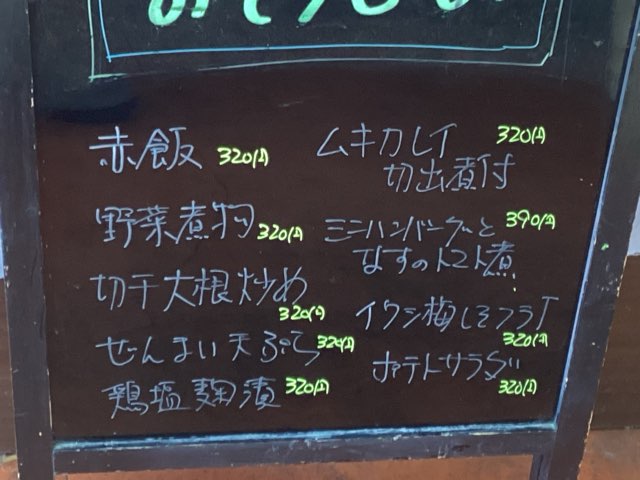 赤飯 320円
野菜煮物 320円
切干大根炒め
320円
ぜんまい天ぷら 320円
鶏塩麹漬 320円
ムキカレイ 320円
切出煮付
ミニハンバーグと 390円
なすのトマト煮
イワシ梅しそフライ
320円
ポテトサラダ
320円